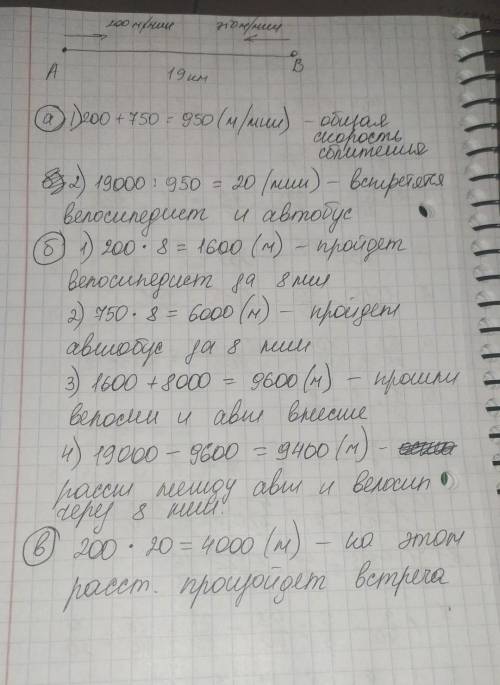 200 м/мин 750 м/мин
A B
19 км
а) 1) 200 + 750 = 950 (м/мин) - общая
скорость
сближения
2) 19000 : 950 = 20 (мин) - встретятся
велосипедист и автобус
б) 1) 200 · 8 = 1600 (м) - пройдет
велосипедист за 8 мин
2) 750 · 8 = 6000 (м) - пройдет
автобус за 8 мин
3) 1600 + 8000 = 9600 (м) - прошли
велосип и авт вместе
4) 19000 - 9600 = 9400 (м) -
расст между авт и велосип
через 8 мин.
в) 200 · 20 = 4000 (м) - на этом
расст. произойдет встреча